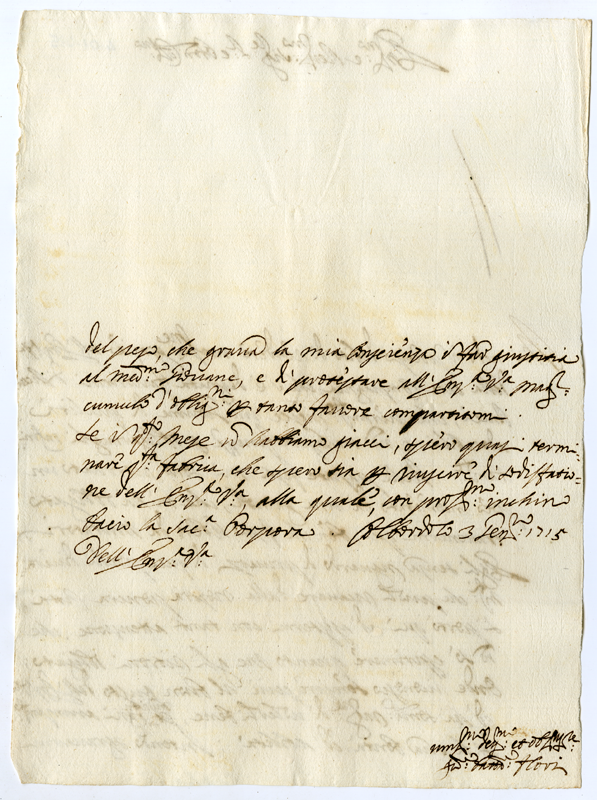 del peso, che gravava la mia Conscienza di far giustitia
al med.mo Giovane, e di protestare all' Em.za V.ra mag.r
cumulo d'oblig.ni per tanto favore compartitomi.
Se il mese non habbiamo giacci, spero quasi termi-
nare q.ta fabrica, che spero sia per riuscire di sodisfatio-
ne dell' Em.za V.ra, alla quale, con prof.mo inchino
bacio la Sac.a Porpora. 3 1715
Dell' Em.za V.ra
um.mo dev.mo et obl.mo